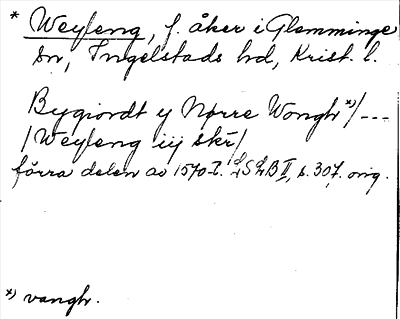 * Weyleng, f. åker i Glemminge
sn, Ingelstads hd, Krist. l.
Bygiordt y Nørre Wongh *)/---
/Weyleng iij skr/
förra delen av 1570-t. LSLB II, s. 307. orig.
*) vangh.